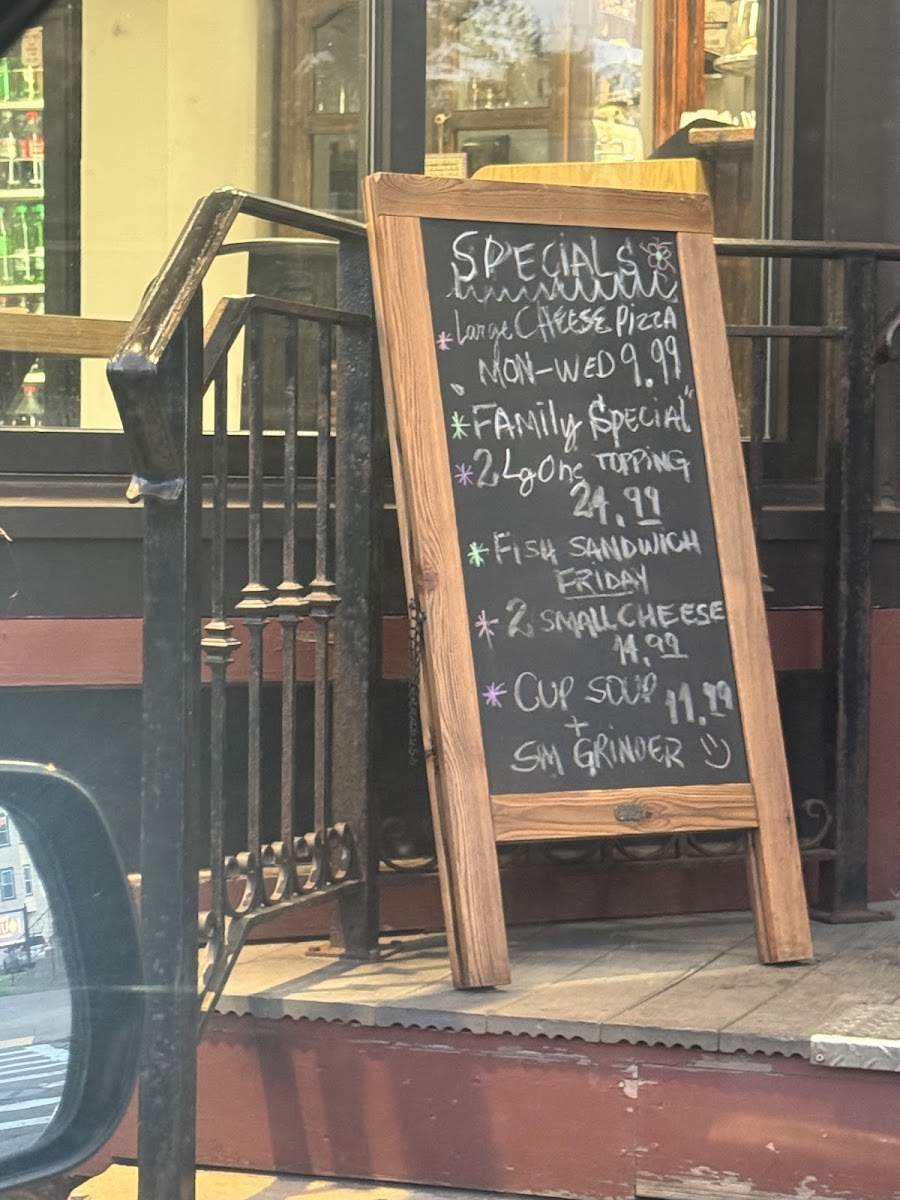 SPECIALS
Large CHEESE PIZZA
MON-WED 9.99
"FAMily Special"
2 Lg One TOPPING
24.99
FISH SANDWICH
FRIDAY
2 SMALL CHEESE
14.99
CUP SOUP 11.99
+
SM GRINDER